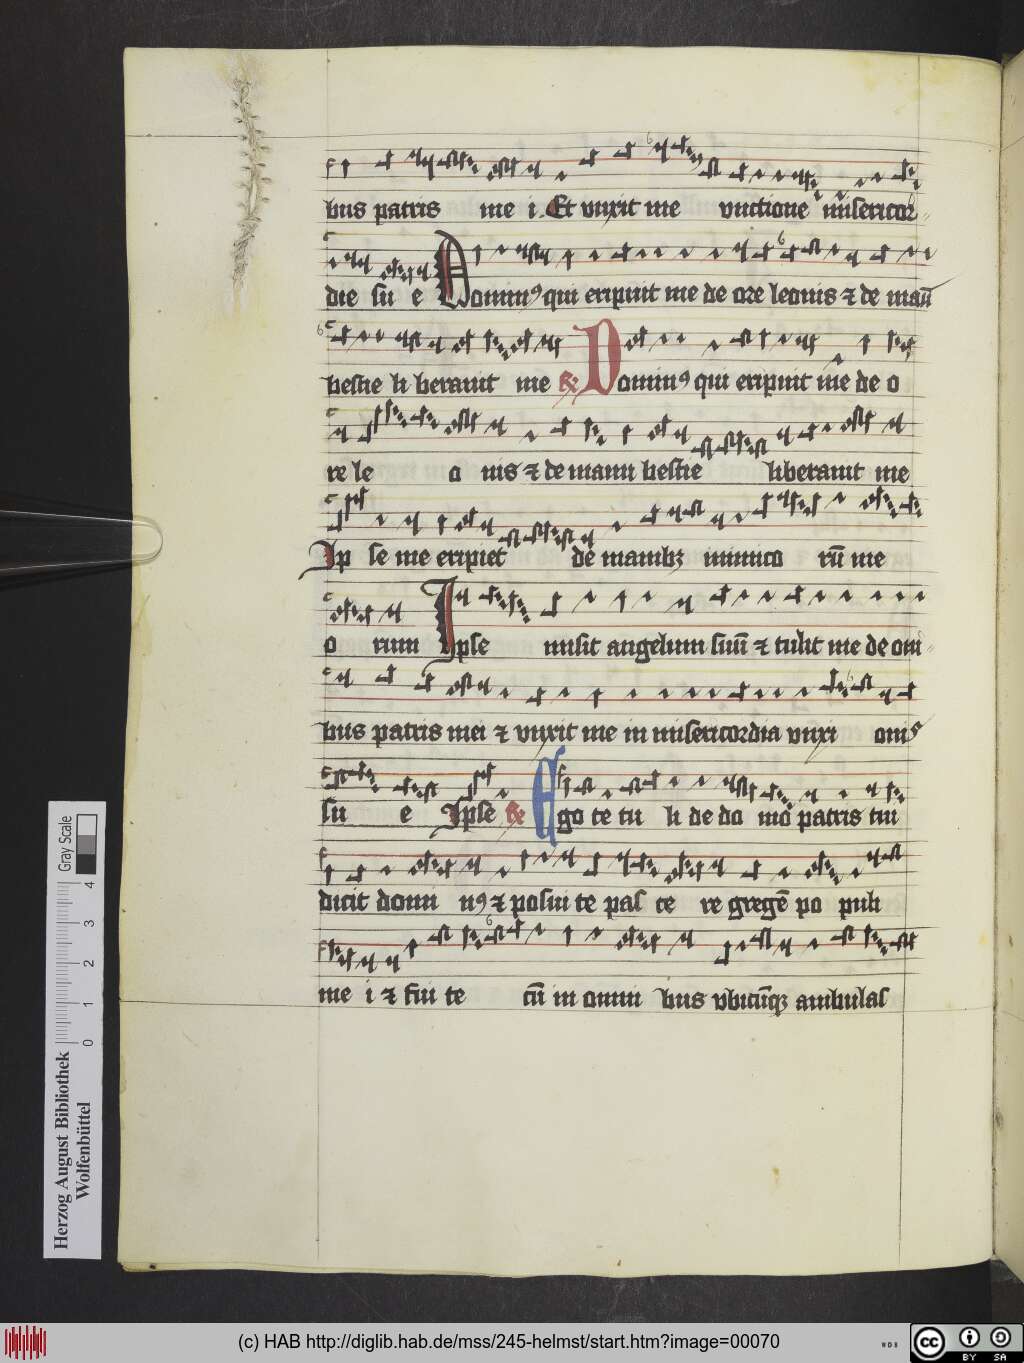 bus patris me i. Et unxit me unctione misericor
die su e Dominꝰ qui eripuit me de ore leonis ⁊ de manū
bestie li beravit me R Dominꝰ qui eripuit me de o
re le o nis ⁊ de manu bestie liberavit me
Ip se me eripiet de manibꝫ inimico rū me
o rum Ipse misit angelum suū ⁊ tulit me de oui
bus patris mei ⁊ unxit me in misericordia unxi onis
su e Ipse R Ego te tu li de do mo patris tui
dicit domi nꝰ ⁊ posui te pas ce re gregē po puli
me i ⁊ fui te cū in omni bus ubicūqꝫ ambulas
Gray Scale
0 1 2 3 4
Herzog August Bibliothek
Wolfenbüttel
(c) HAB http://diglib.hab.de/mss/245-helmst/start.htm?image=00070
WDB
cc BY SA